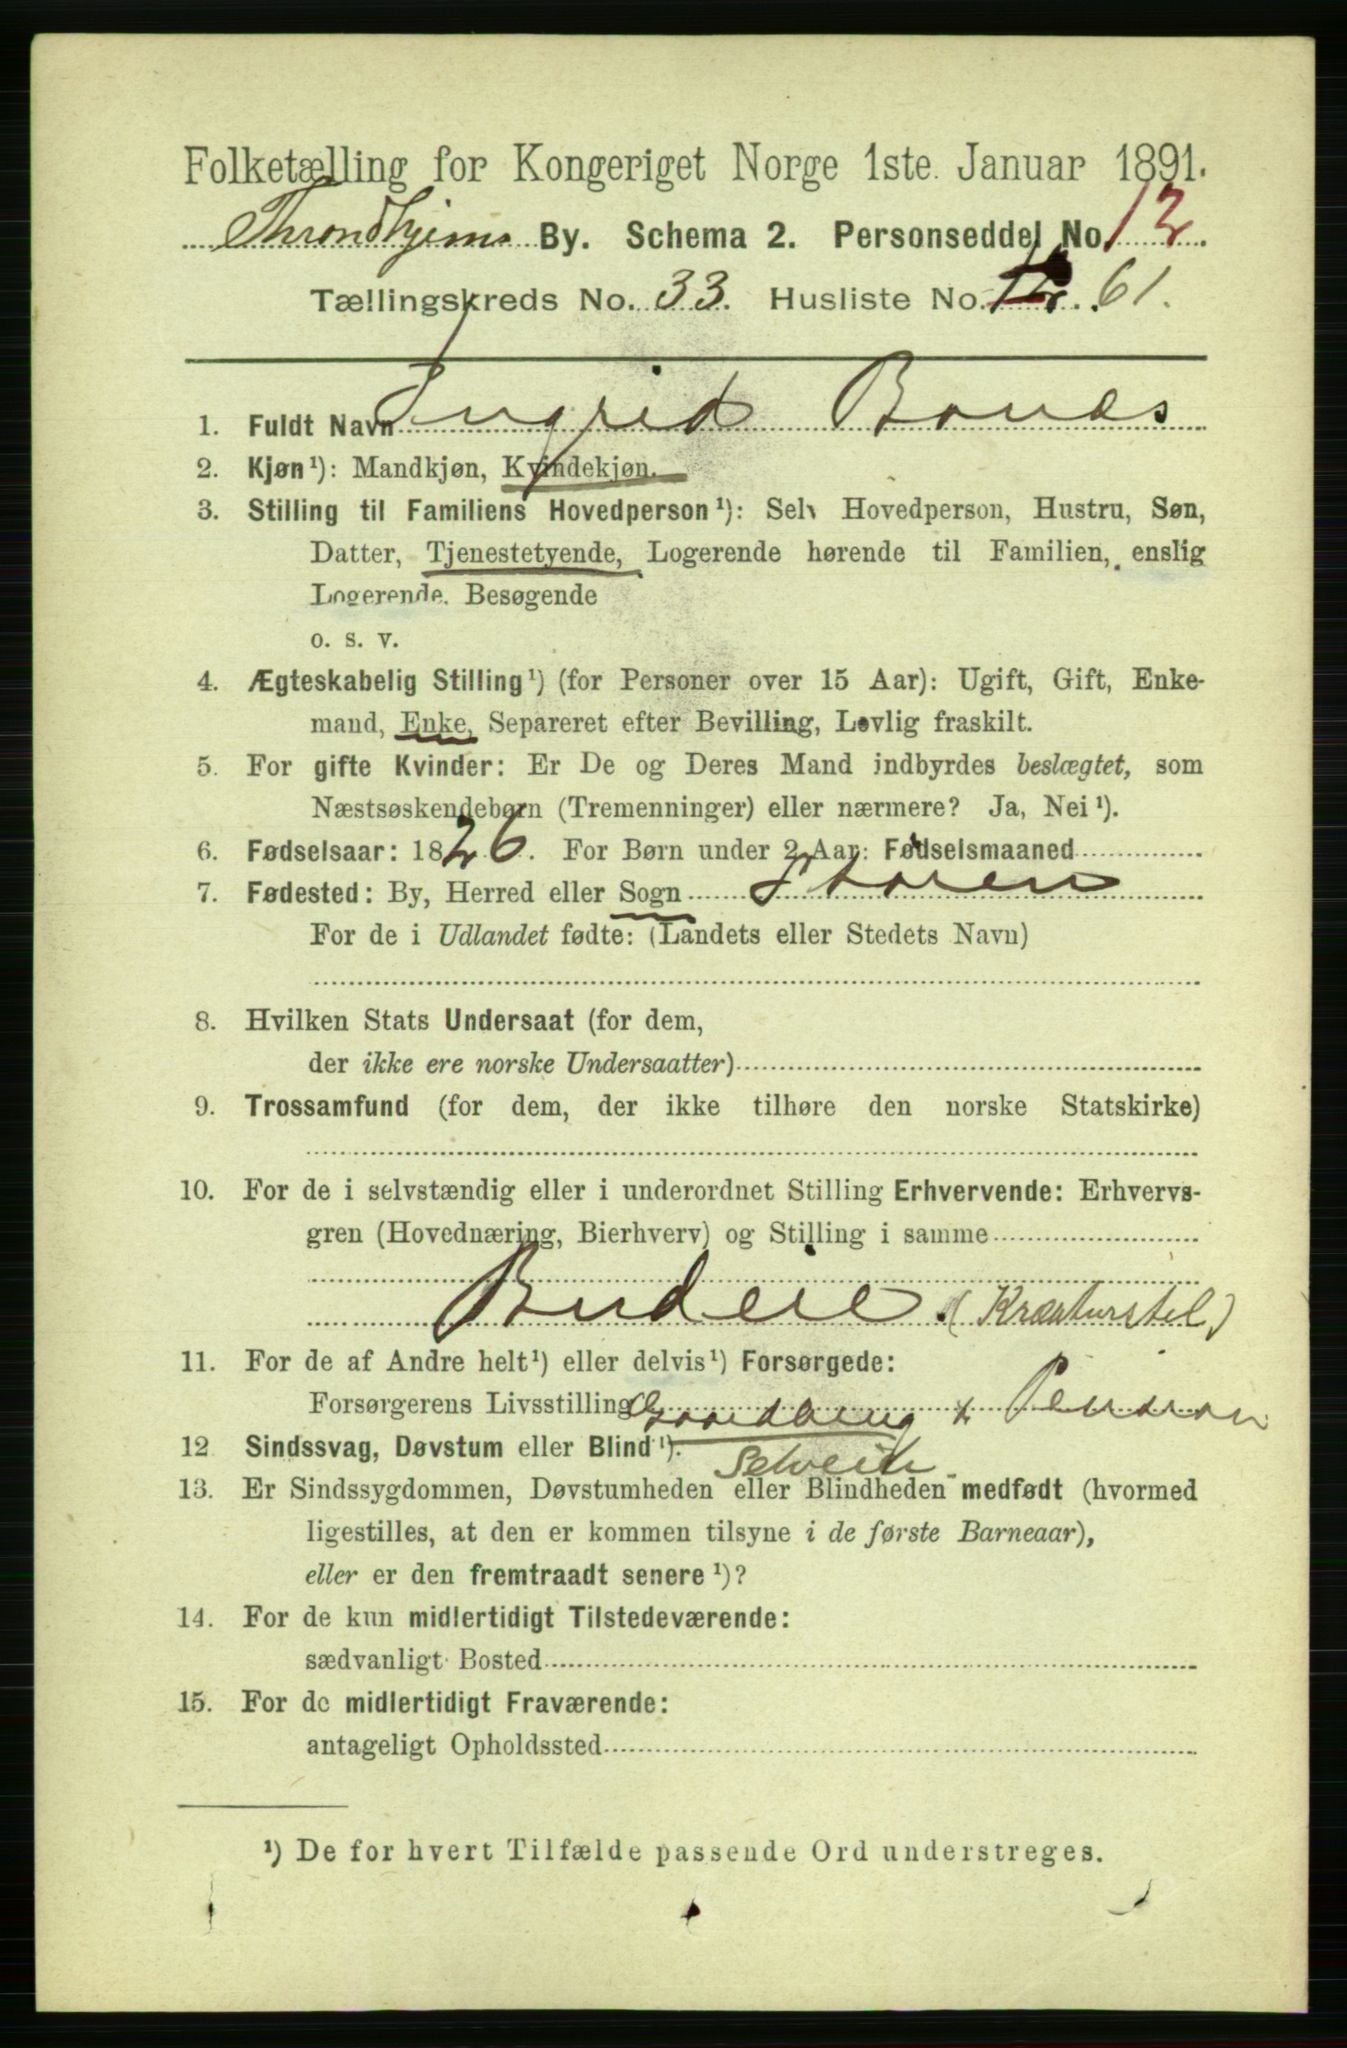 Folketælling for Kongeriget Norge 1ste. Januar 1891.
Throndhjems By. Schema 2. Personseddel No. 12.
Tællingskreds No. 33. Husliste No. 61.
1. Fuldt Navn Ingrid Bones
2. Kjøn ¹): Mandkjøn, Kvindekjøn.
3. Stilling til Familiens Hovedperson ¹): Selv Hovedperson, Hustru, Søn,
Datter, Tjenestetyende, Logerende hørende til Familien, enslig
Logerende, Besøgende
o. s. v.
4. Ægteskabelig Stilling ¹) (for Personer over 15 Aar): Ugift, Gift, Enke-
mand, Enke, Separeret efter Bevilling, Lovlig fraskilt.
5. For gifte Kvinder: Er De og Deres Mand indbyrdes beslægtet, som
Næstsøskendebørn (Tremenninger) eller nærmere? Ja, Nei ¹).
6. Fødselsaar: 1826. For Børn under 2 Aar: Fødselsmaaned
7. Fødested: By, Herred eller Sogn Storen
For de i Udlandet fødte: (Landets eller Stedets Navn)
8. Hvilken Stats Undersaat (for dem,
der ikke ere norske Undersaatter)
9. Trossamfund (for dem, der ikke tilhøre den norske Statskirke)
10. For de i selvstændig eller i underordnet Stilling Erhvervende: Erhvervs-
gren (Hovednæring, Bierhverv) og Stilling i samme
Budeie. (Kræaturstel)
11. For de af Andre helt ¹) eller delvis ¹) Forsørgede:
Forsørgerens Livsstilling Gaardbrug & Pension
12 Sindssvag, Døvstum eller Blind ¹).
Selveier
13. Er Sindssygdommen, Døvstumheden eller Blindheden medfødt (hvormed
ligestilles, at den er kommen tilsyne i de første Barneaar),
eller er den fremtraadt senere ¹)?
14. For de kun midlertidigt Tilstedeværende:
sædvanligt Bosted
15. For de midlertidigt Fraværende:
antageligt Opholdssted
¹) De for hvert Tilfælde passende Ord understreges.